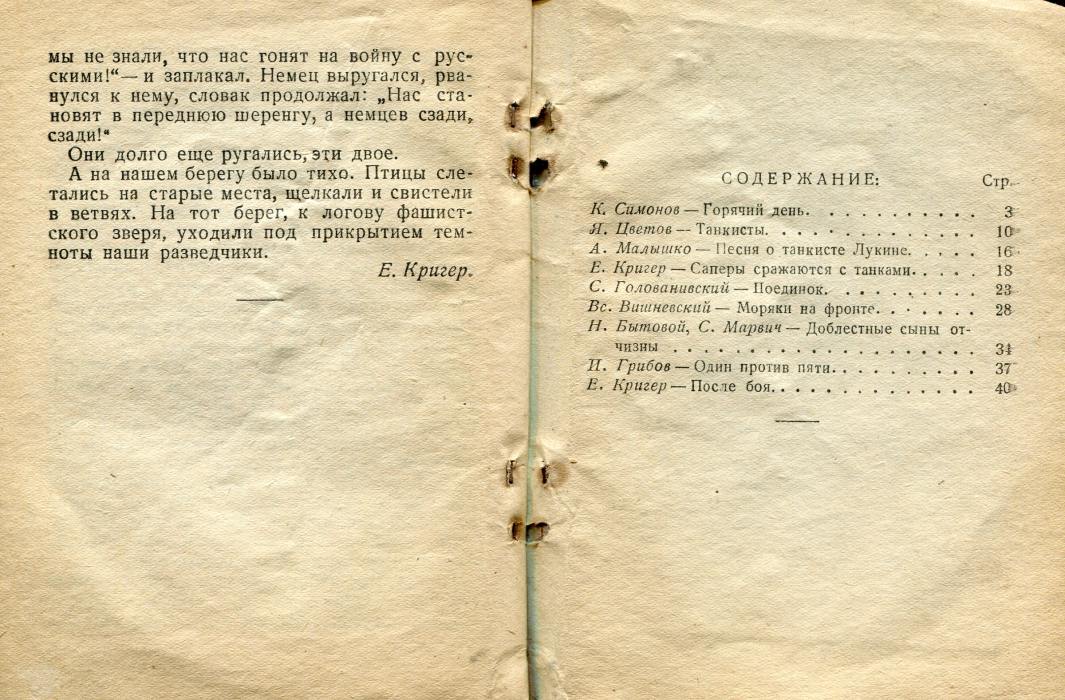 мы не знали, что нас гонят на войну с рус-
скими!“— и заплакал. Немец выругался, рва-
нулся к нему, словак продолжал: „Нас ста-
новят в переднюю шеренгу, а немцев сзади,
сзади!“
Они долго еще ругались, эти двое.
А на нашем берегу было тихо. Птицы сле-
тались на старые места, щелкали и свистели
в ветвях. На тот берег, к логову фашист-
ского зверя, уходили под прикрытием тем-
ноты наши разведчики.
Е. Кригер.
СОДЕРЖАНИЕ: Стр.
К. Симонов — Горячий день. . . . . . . . . . 3
Я. Цветов — Танкисты. . . . . . . . . . . . . 10
А. Малышко — Песня о танкисте Лукине. . . . . 16
Е. Кригер — Саперы сражаются с танками. . . . . 18
С. Голованивский — Поединок. . . . . . . . . 23
Вс. Вишневский — Моряки на фронте. . . . . . . 28
Н. Бытовой, С. Марвич — Доблестные сыны от-
чизны . . . . . . . . . . . . . . . . . . 34
И. Грибов — Один против пяти. . . . . . . . . 37
Е. Кригер — После боя. . . . . . . . . . . . 40